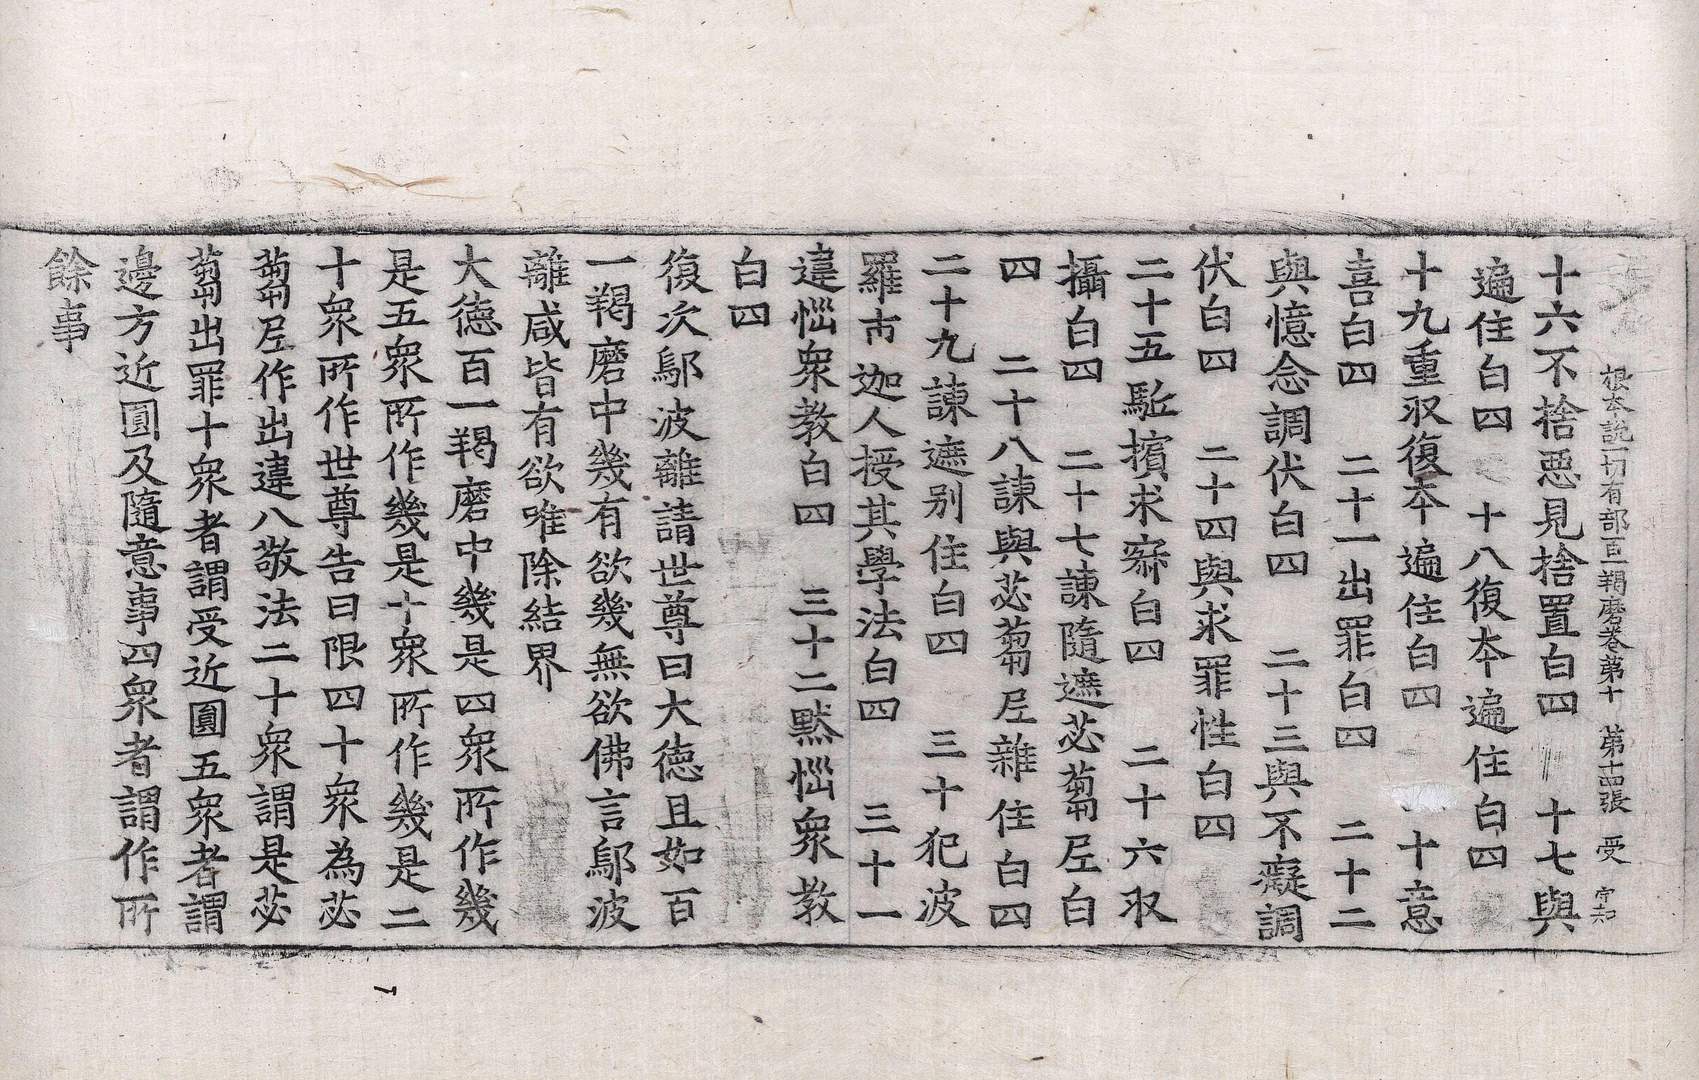 根本說一切有部百一羯磨卷第十　第十四張　受
十六不捨惡見捨置白四　十七與
遍住白四　十八復本遍住白四
十九重収復本遍住白四　十意
喜白四　二十一出罪白四　二十二
與憶念調伏白四　二十三與不癡調
伏白四　二十四與求罪性白四
二十五駈擯求寂白四　二十六収
攝白四　二十七諫隨遮苾蒭尼白
四　二十八諫與苾蒭尼雜住白四
二十九諫遮别住白四　三十犯波
羅市迦人授其學法白四　三十一
違惱衆教白四　三十二黙惱衆教
白四
復次鄔波離請世尊曰大德且如百
一羯磨中幾有欲幾無欲佛言鄔波
離咸皆有欲唯除結界
大德百一羯磨中幾是四衆所作幾
是五衆所作幾是十衆所作幾是二
十衆所作世尊告曰限四十衆為苾
蒭尼作出違八敬法二十衆謂是苾
蒭出罪十衆者謂受近圓五衆者謂
邊方近圓及隨意事四衆者謂作所
餘事